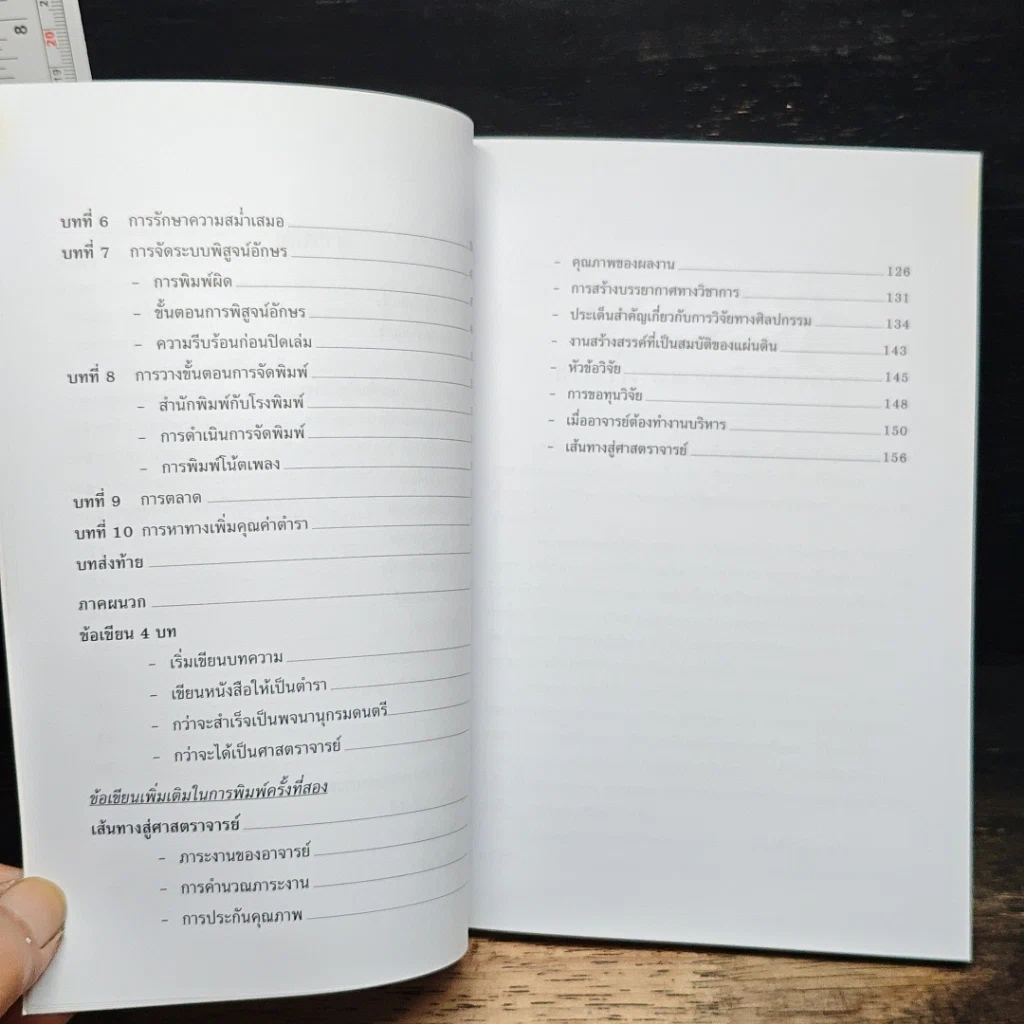 8
20
19
บทที่ 6 การรักษาความสม่ำเสมอ
บทที่ 7 การจัดระบบพิสูจน์อักษร
– การพิมพ์ผิด
– ขั้นตอนการพิสูจน์อักษร
– ความรีบร้อนก่อนปิดเล่ม
บทที่ 8 การวางขั้นตอนการจัดพิมพ์
– สำนักพิมพ์กับโรงพิมพ์
– การดำเนินการจัดพิมพ์
– การพิมพ์โน้ตเพลง
บทที่ 9 การตลาด
บทที่ 10 การหาทางเพิ่มคุณค่าตำรา
บทส่งท้าย
ภาคผนวก
ข้อเขียน 4 บท
– เริ่มเขียนบทความ
– เขียนหนังสือให้เป็นตำรา
– กว่าจะสำเร็จเป็นพจนานุกรมดนตรี
– กว่าจะได้เป็นศาสตราจารย์
ข้อเขียนเพิ่มเติมในการพิมพ์ครั้งที่สอง
เส้นทางสู่ศาสตราจารย์
– ภาระงานของอาจารย์
– การคำนวณภาระงาน
– การประกันคุณภาพ
– คุณภาพของผลงาน 126
– การสร้างบรรยากาศทางวิชาการ 131
– ประเด็นสำคัญเกี่ยวกับการวิจัยทางศิลปกรรม 134
– งานสร้างสรรค์ที่เป็นสมบัติของแผ่นดิน 143
– หัวข้อวิจัย 145
– การขอทุนวิจัย 148
– เมื่ออาจารย์ต้องทำงานบริหาร 150
– เส้นทางสู่ศาสตราจารย์ 156